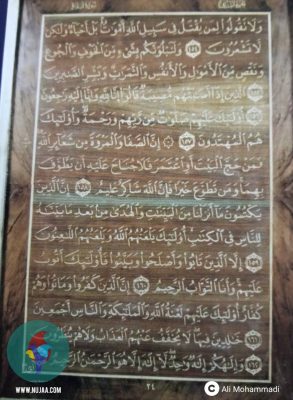 وَلَا تَقُولُوا لِمَن يُقْتَلُ فِي سَبِيلِ اللَّهِ أَمْوَاتٌ بَلْ أَحْيَاءٌ وَلَٰكِن
لَّا تَشْعُرُونَ ﴿١٥٤﴾ وَلَنَبْلُوَنَّكُم بِشَيْءٍ مِّنَ الْخَوْفِ وَالْجُوعِ
وَنَقْصٍ مِّنَ الْأَمْوَالِ وَالْأَنفُسِ وَالثَّمَرَاتِ وَبَشِّرِ الصَّابِرِينَ
﴿١٥٥﴾ الَّذِينَ إِذَا أَصَابَتْهُم مُّصِيبَةٌ قَالُوا إِنَّا لِلَّهِ وَإِنَّا إِلَيْهِ رَاجِعُونَ
﴿١٥٦﴾ أُولَٰئِكَ عَلَيْهِمْ صَلَوَاتٌ مِّن رَّبِّهِمْ وَرَحْمَةٌ وَأُولَٰئِكَ
هُمُ الْمُهْتَدُونَ ﴿١٥٧﴾ إِنَّ الصَّفَا وَالْمَرْوَةَ مِن شَعَائِرِ اللَّهِ
فَمَنْ حَجَّ الْبَيْتَ أَوِ اعْتَمَرَ فَلَا جُنَاحَ عَلَيْهِ أَن يَطَّوَّفَ
بِهِمَا وَمَن تَطَوَّعَ خَيْرًا فَإِنَّ اللَّهَ شَاكِرٌ عَلِيمٌ ﴿١٥٨﴾ إِنَّ الَّذِينَ
يَكْتُمُونَ مَا أَنزَلْنَا مِنَ الْبَيِّنَاتِ وَالْهُدَىٰ مِن بَعْدِ مَا بَيَّنَّاهُ
لِلنَّاسِ فِي الْكِتَابِ أُولَٰئِكَ يَلْعَنُهُمُ اللَّهُ وَيَلْعَنُهُمُ اللَّاعِنُونَ
﴿١٥٩﴾ إِلَّا الَّذِينَ تَابُوا وَأَصْلَحُوا وَبَيَّنُوا فَأُولَٰئِكَ أَتُوبُ
عَلَيْهِمْ وَأَنَا التَّوَّابُ الرَّحِيمُ ﴿١٦٠﴾ إِنَّ الَّذِينَ كَفَرُوا وَمَاتُوا وَهُمْ
كُفَّارٌ أُولَٰئِكَ عَلَيْهِمْ لَعْنَةُ اللَّهِ وَالْمَلَائِكَةِ وَالنَّاسِ أَجْمَعِينَ
﴿١٦١﴾ خَالِدِينَ فِيهَا لَا يُخَفَّفُ عَنْهُمُ الْعَذَابُ وَلَا هُمْ يُنظَرُونَ
﴿١٦٢﴾ وَإِلَٰهُكُمْ إِلَٰهٌ وَاحِدٌ لَّا إِلَٰهَ إِلَّا هُوَ الرَّحْمَٰنُ الرَّحِيمُ
٢٤
WWW.NUJAA.COM
C Ali Mohammadi